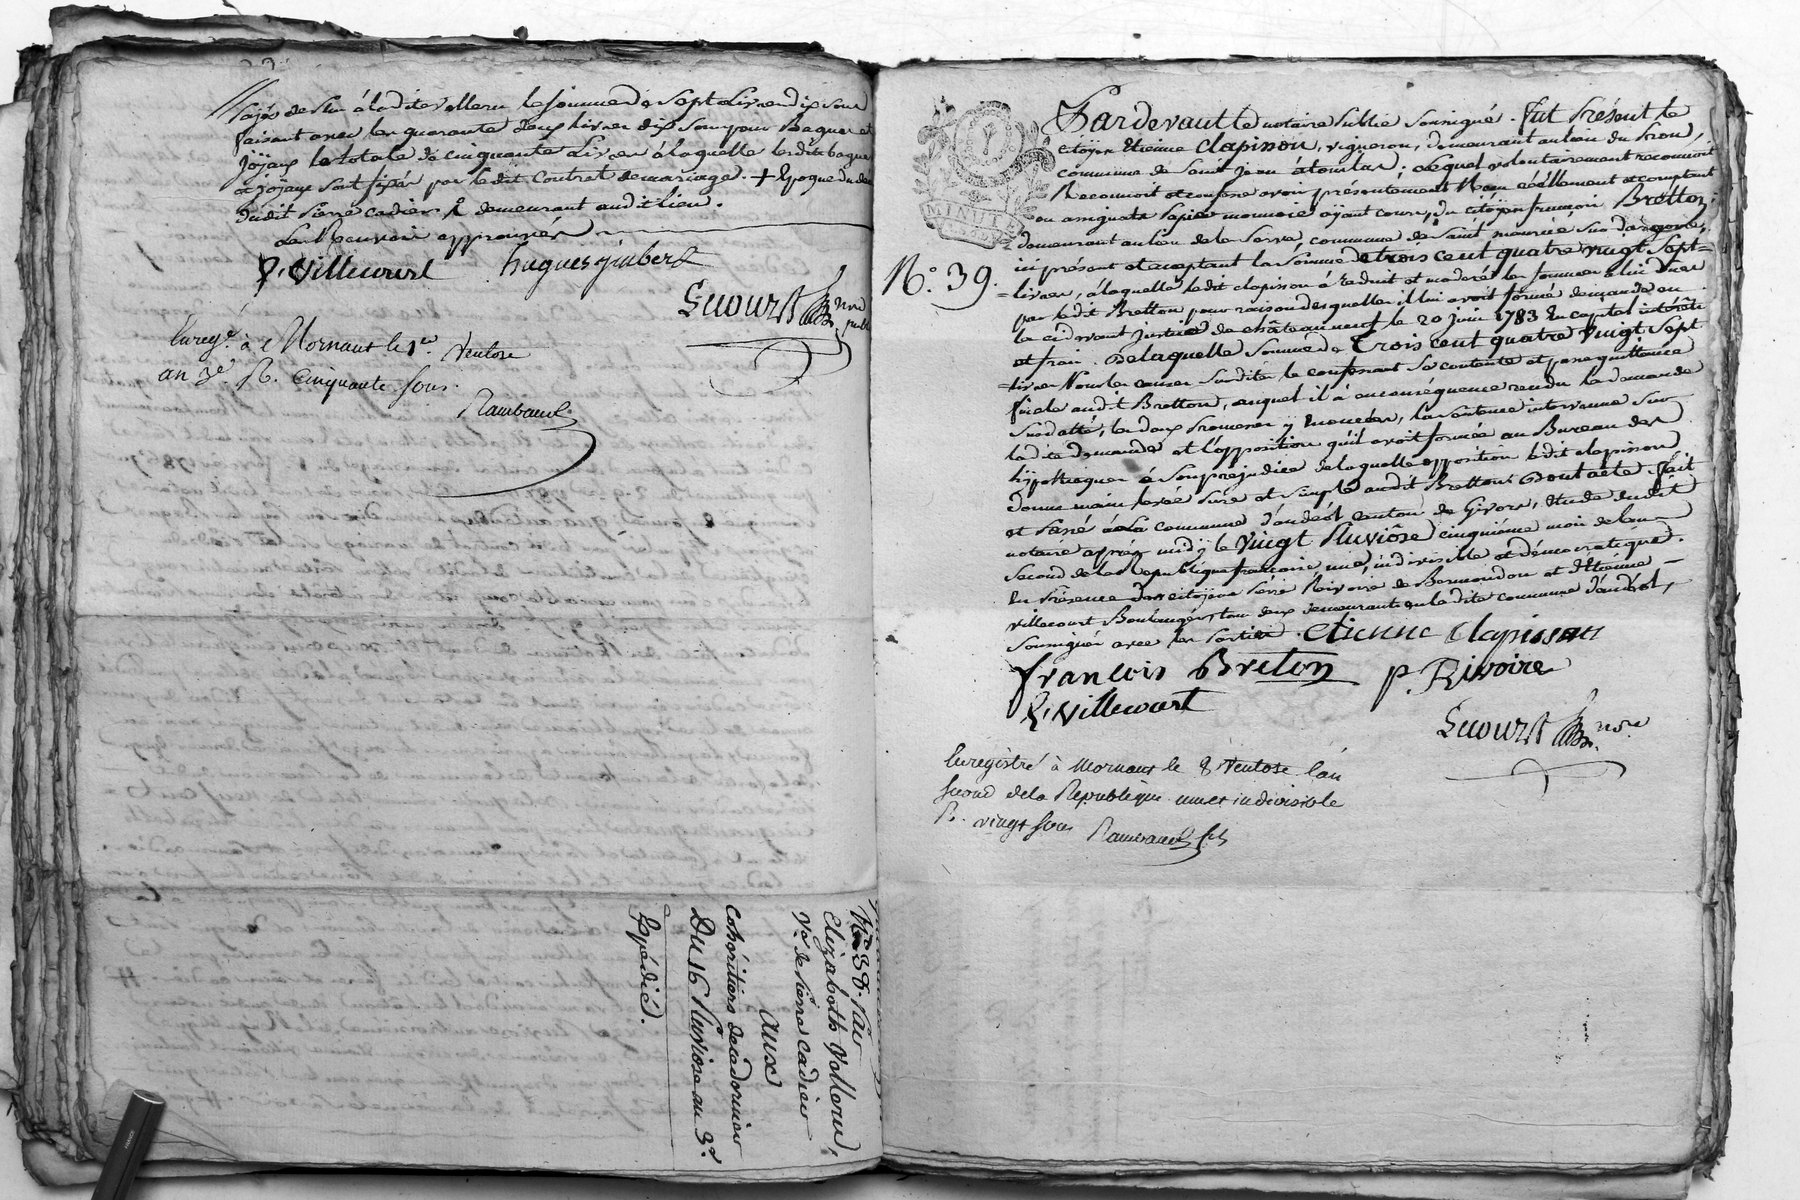 payés de plus à ladite Valleru la somme de sept livres dix sous
faisant avec les quarante deux livres dix sous pour Bagues et
Joÿaux le totale de cinquante Livres à laquelle lesdits bagues
et joÿaux sont fixés par ledit Contrat de mariage. + Epoque du décès
dudit Pierre Cadier demeurant audit lieu.
Les Renvois approuvés
Villecourt hugues jimbert
Lecourt nre public
Enregé. à Mornant le 1er. Ventose
an 3e. R. Cinquante sous.
Rambaud
No. 38. Par
Elizabeth Valleru,
Ve. de Pierre Cadier
Aux
Cohéritiers de ce dernier
Du 16 Pluviose an 3e.
Expédié.
MINUTE
No. 39.
Pardevant le notaire Public soussigné. Fut Présent le
citoÿen Etienne Clapisson, vigneron, demeurant au lieu du
commune de Saint Jean à toulas; Lequel volontairement reconnoit
Reconnoit et confesse avoir présentement Reçu réellement et comptant
en assignats Papier monnoie aÿant cours, du citoÿen françois Bretton,
demeurant au lieu de la Serra, commune de Saint maurice sur dargoire,
ici présent et acceptant la Somme de trois cent quatre vingt sept
livres, à laquelle ledit clapisson à réduit et modéré les sommes à lui dues
par ledit Bretton pour raison desquelles il lui avoit formé demande en
la cidevant justice de châteauneuf le 20 juin 1783 En capital intérêts
et frais. De laquelle Somme de trois cent quatre vingt sept
livres Pour les causes susdites le confessant se contente et passe quittance
finale audit Bretton, auquel il à en conséquence rendu la demande
susdatté, les deux Promesses y énoncées, la sentence intervenue sur
ladite demande et l'opposition qu'il avoit formée au Bureau des
hÿpothèques à son préjudice de laquelle opposition ledit clapisson
donne main levée pure et simple audit Bretton. Dont acte. Fait
et Passé à la commune d'andéol canton de Givors, étude dudit
notaire après midÿ le Vingt Pluviôse cinquième mois de l'an
second de la République française, une, indivisible et démocratique.
En Présence des citoÿens Pierre Rivoire de Bermondon et Etienne
villecourt Boulanger, tous deux demeurants en la dite commune d'andéol,
Soussignés avec les Parties. etienne Clapisson
françois Breton P. Rivoire
Villecourt
Lecourt nore.
Enregistré à Mornant le 8 Ventose l'an
second de la République une et indivisible
R. vingt sous Rambaud